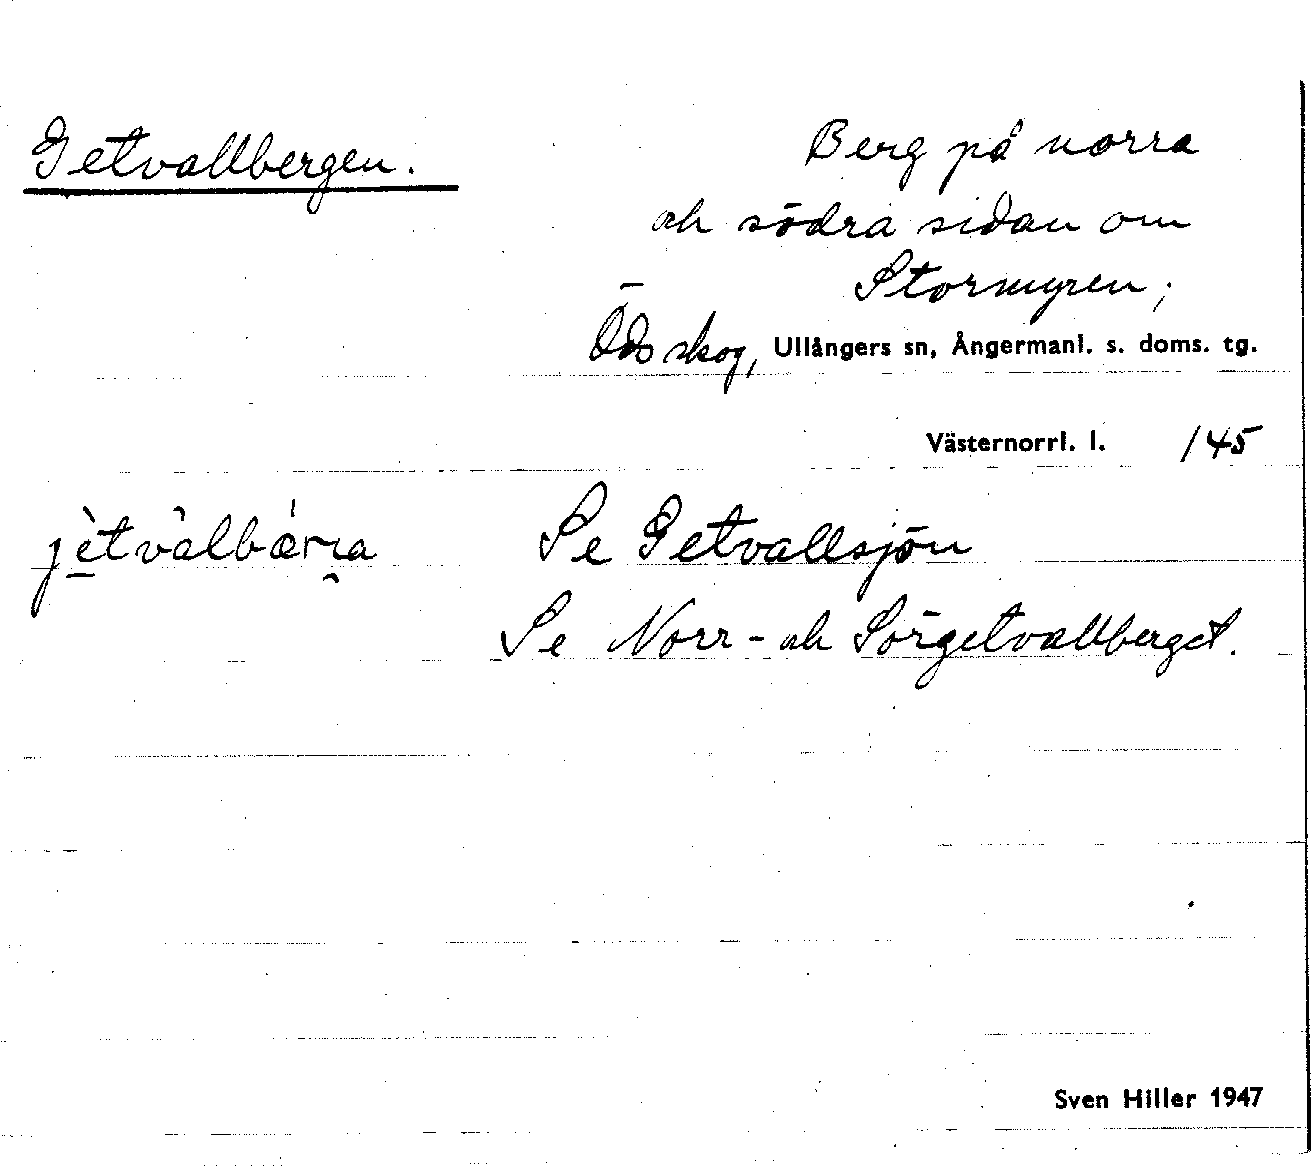 Getvallbergen.
Berg på norra
och södra sidan om
Stormyren;
Öds skog, Ullångers sn, Ångermanl. s. doms. tg.
Västernorrl. l. 145
Se Getvallsjön
Se Norr- och Sörgetvallberget.
Sven Hiller 1947